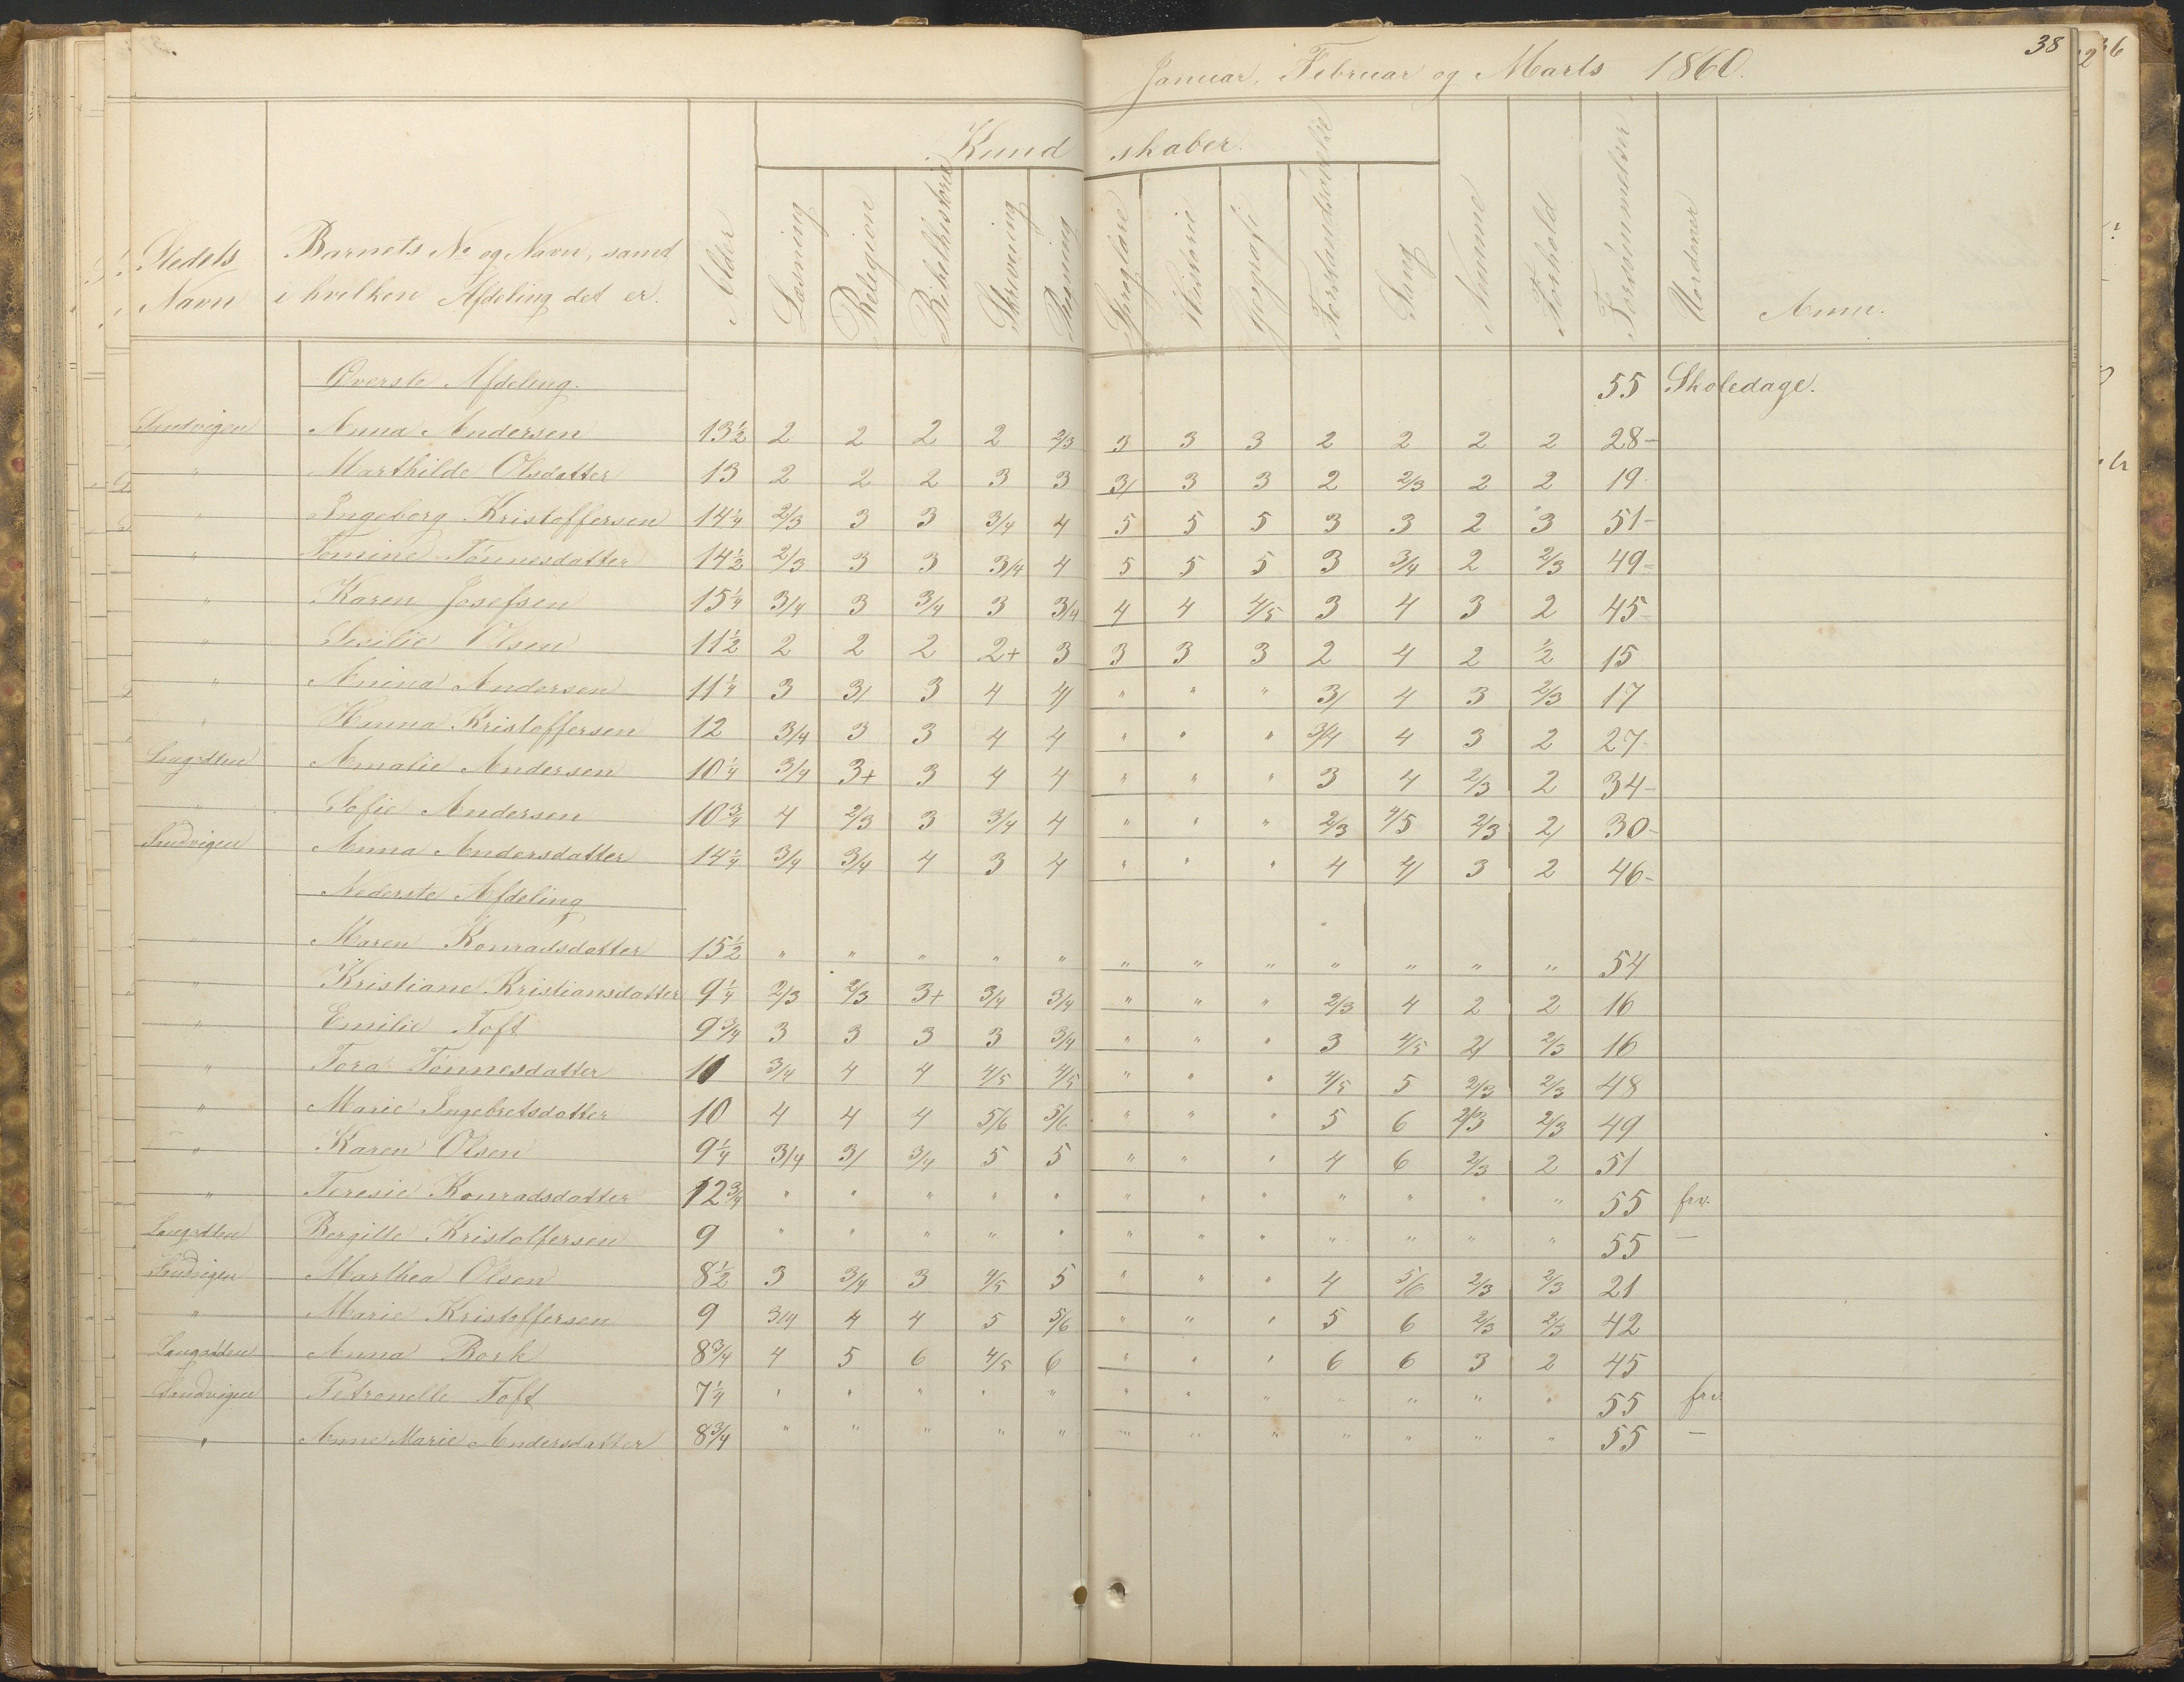 Januar, Februar og Marts 1860. 38
Kundskaber.
Stedets Navn
Barnets No og Navn, samt i hvilken Afdeling det er.
Alder Læsning Religion Bibelhistorie Skrivning Regning Sproglære Historie Geografi Forstandsøvelse Sang Nemme Forhold Forsømmelser Uordener Anm.
Øverste Afdeling. 55 Skoledage.
Sandvigen Anna Andersen 13½ 2 2 2 2 2/3 3 3 3 2 2 2 2 28-
" Marthilde Olsdatter 13 2 2 2 3 3 3/ 3 3 2 2/3 2 2 19
" Ingeborg Kristoffersen 14¼ 2/3 3 3 3/4 4 5 5 5 3 3 2 3 51-
" Tomine Tønnesdatter 14½ 2/3 3 3 3/4 4 5 5 5 3 3/4 2 2/3 49-
" Karen Josefsen 15¼ 3/4 3 3/4 3 3/4 4 4 4/5 3 4 3 2 45-
" Sesilie Olsen 11½ 2 2 2 2+ 3 3 3 3 2 4 2 ½ 15
" Anina Andersen 11¼ 3 3/ 3 4 4/ " " " 3/ 4 3 2/3 17
" Hanna Kristoffersen 12 3/4 3 3 4 4 " " " 3/4 4 3 2 27
Langodten Amalie Andersen 10¼ 3/4 3+ 3 4 4 " " " 3 4 2/3 2 34-
" Sofie Andersen 10¾ 4 2/3 3 3/4 4 " " " 2/3 4/5 2/3 2/ 30-
Sandvigen Anna Andersdatter 14¼ 3/4 3/4 4 3 4 " " " 4 4/ 3 2 46-
Nederste Afdeling
" Maren Konradsdatter 15½ " " " " " " " " " " " " 54
" Kristiane Kristiansdatter 9¼ 2/3 2/3 3+ 3/4 3/4 " " " 2/3 4 2 2 16
" Emilie Toft 9¾ 3 3 3 3 3/4 " " " 3 4/5 2/ 2/3 16
" Tora Tønnesdatter 11 3/4 4 4 4/5 4/5 " " " 4/5 5 2/3 2/3 48
" Marie Ingebretsdatter 10 4 4 4 5/6 5/6 " " " 5 6 2/3 2/3 49
" Karen Olsen 9¼ 3/4 3/ 3/4 5 5 " " " 4 6 2/3 2 51
" Teresie Konradsdatter 12¾ " " " " " " " " " " " " 55 frv.
Langodten Bergitte Kristoffersen 9 " " " " " " " " " " " " 55 —
Sandvigen Marthea Olsen 8½ 3 3/4 3 4/5 5 " " " 4 5/6 2/3 2/3 21
" Marie Kristoffersen 9 3/4 4 4 5 5/6 " " " 5 6 2/3 2/3 42
Langodten Anna Bork 8¾ 4 5 6 4/5 6 " " " 6 6 3 2 45
Sandvigen Petronelle Toft 7¼ " " " " " " " " " " " " 55 frv.
" Anne Marie Andersdatter 8¾ " " " " " " " " " " " " 55 —